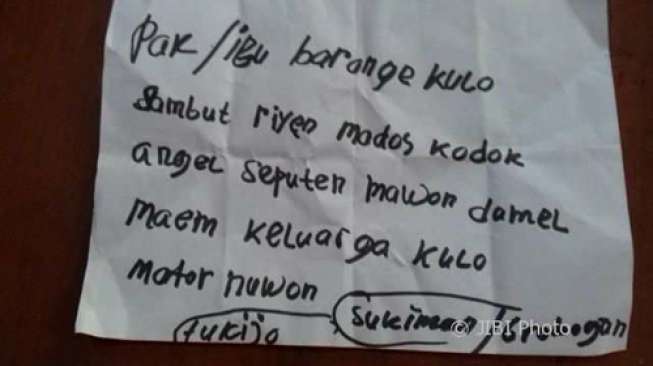 Pak/ibu barange kulo
sambut riyen modos kodok
angel seputen mawon damel
maem keluarga kulo
motor nuwon
tukijo sukiman/
© JIBI Photo